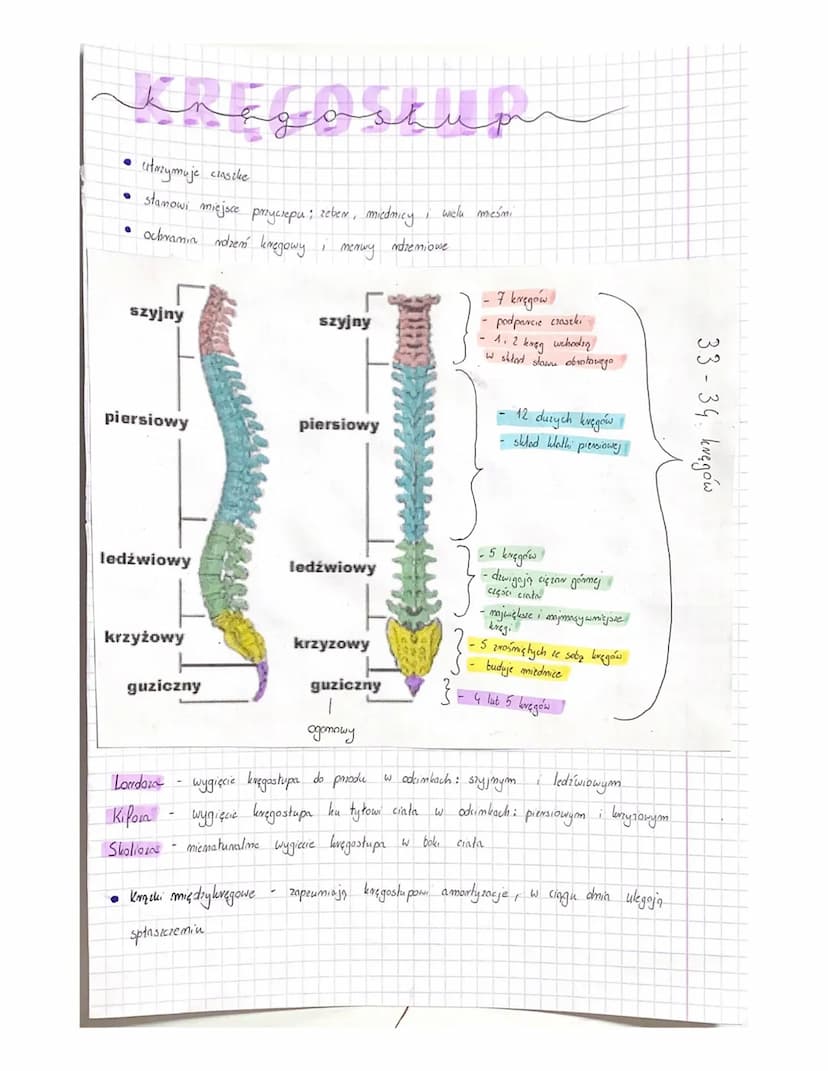 KRĘGOSŁUP
kręgosłup
• utrzymuje czaszkę
• stanowi miejsce przyczepu; żeber, miednicy i wielu mięśni
• ochrania rdzeń kręgowy i nerwy rdzeniowe
szyjny
piersiowy
lędźwiowy
krzyżowy
guziczny
szyjny
piersiowy
lędźwiowy
krzyzowy
guziczny
ogonowy
- 7 kręgów
- podparcie czaszki
- 1 i 2 kręg wchodzą
w skład stawu obrotowego
- 12 dużych kręgów
- skład klatki piersiowej
- 5 kręgów
- dźwigają ciężar górnej
części ciała
- największe i najmasywniejsze
kręgi
- 5 zrośniętych ze sobą kręgów
- buduje miednice
- 4 lub 5 kręgów
33-34 kręgów
Lordoza - wygięcie kręgosłupa do przodu w odcinkach: szyjnym i lędźwiowym
Kifoza - wygięcie kręgosłupa ku tyłowi ciała w odcinkach: piersiowym i krzyżowym
Skolioza - nienaturalne wygięcie kręgosłupa w boki ciała
• Krążki międzykręgowe - zapewniają kręgosłupowi amortyzację, w ciągu dnia ulegają
spłaszczeniu